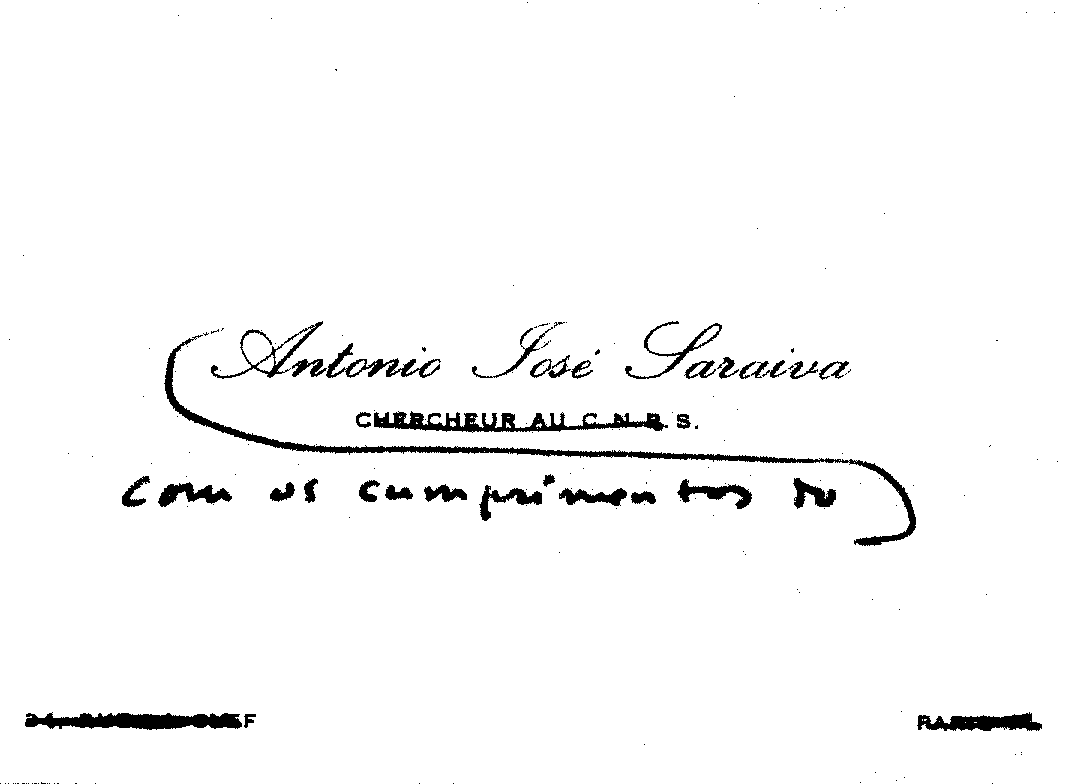 Antonio José Saraiva
CHERCHEUR AU C. N. R. S.
com os cumprimentos do